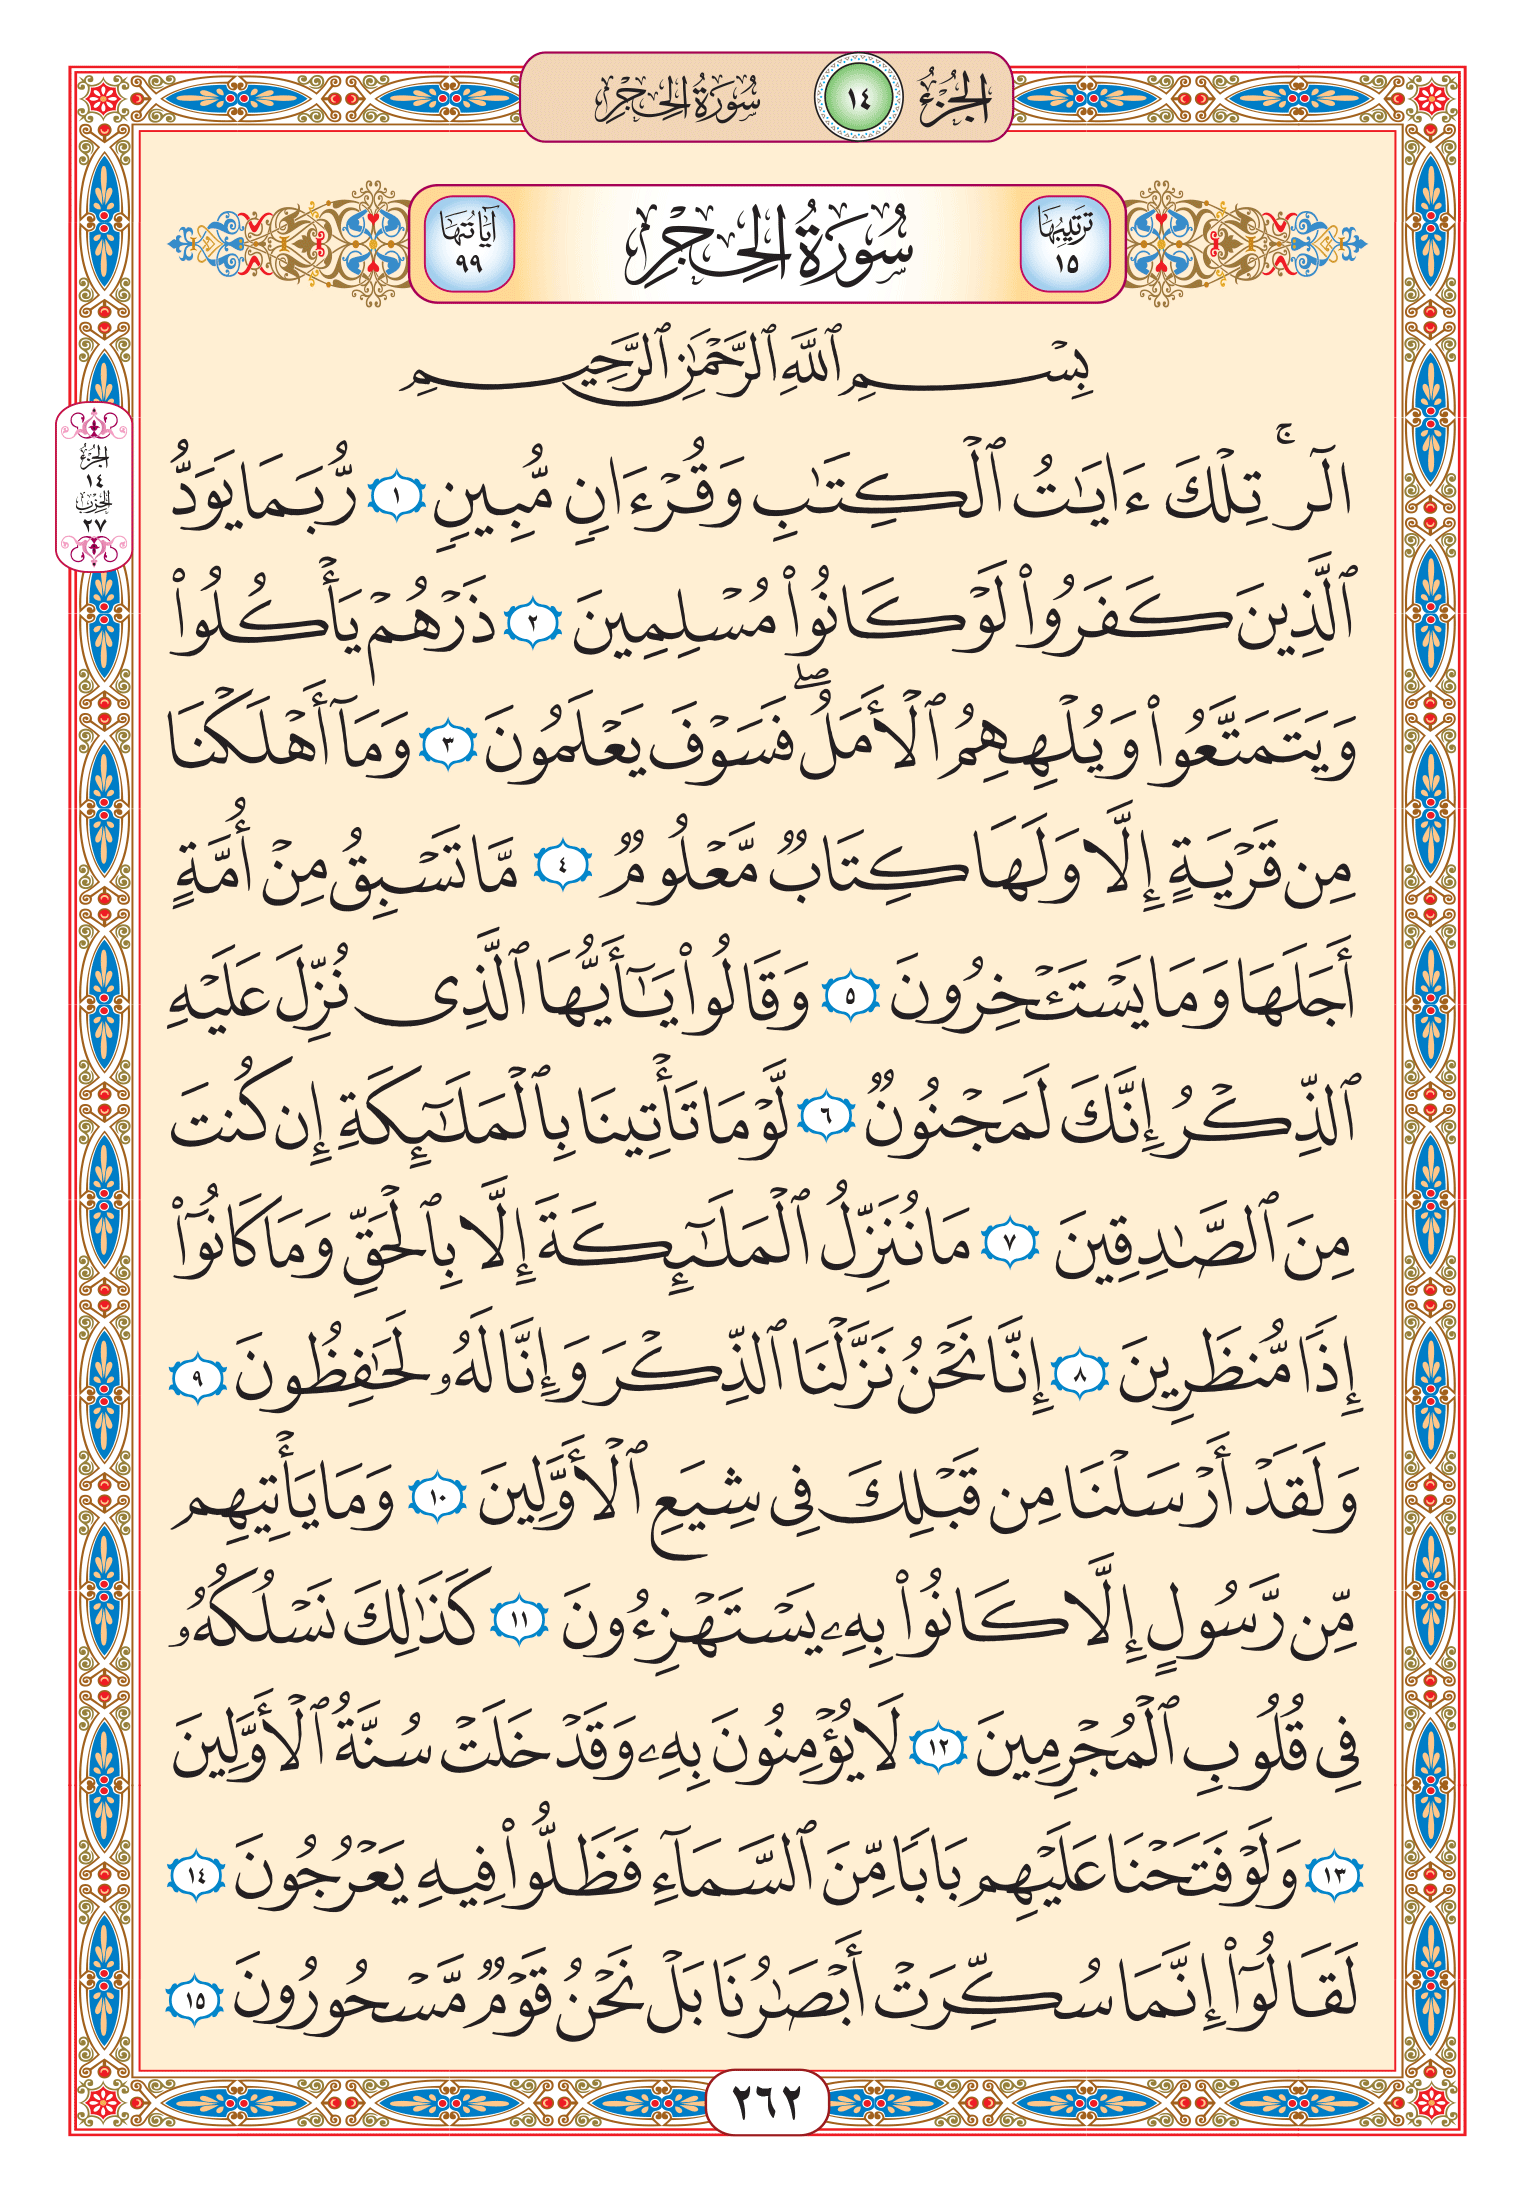 الجزء ١٤ سورة الحجر
ترتيبها ١٥ سورة الحجر آياتها ٩٩
بِسْمِ ٱللَّهِ ٱلرَّحْمَٰنِ ٱلرَّحِيمِ
الٓرۚ تِلْكَ ءَايَٰتُ ٱلْكِتَٰبِ وَقُرْءَانٍ مُّبِينٍ ١ رُّبَمَا يَوَدُّ
ٱلَّذِينَ كَفَرُوا۟ لَوْ كَانُوا۟ مُسْلِمِينَ ٢ ذَرْهُمْ يَأْكُلُوا۟
وَيَتَمَتَّعُوا۟ وَيُلْهِهِمُ ٱلْأَمَلُۖ فَسَوْفَ يَعْلَمُونَ ٣ وَمَآ أَهْلَكْنَا
مِن قَرْيَةٍ إِلَّا وَلَهَا كِتَابٌ مَّعْلُومٌ ٤ مَّا تَسْبِقُ مِنْ أُمَّةٍ
أَجَلَهَا وَمَا يَسْتَـْٔخِرُونَ ٥ وَقَالُوا۟ يَٰٓأَيُّهَا ٱلَّذِى نُزِّلَ عَلَيْهِ
ٱلذِّكْرُ إِنَّكَ لَمَجْنُونٌ ٦ لَّوْ مَا تَأْتِينَا بِٱلْمَلَٰٓئِكَةِ إِن كُنتَ
مِنَ ٱلصَّٰدِقِينَ ٧ مَا نُنَزِّلُ ٱلْمَلَٰٓئِكَةَ إِلَّا بِٱلْحَقِّ وَمَا كَانُوٓا۟
إِذًا مُّنظَرِينَ ٨ إِنَّا نَحْنُ نَزَّلْنَا ٱلذِّكْرَ وَإِنَّا لَهُۥ لَحَٰفِظُونَ ٩
وَلَقَدْ أَرْسَلْنَا مِن قَبْلِكَ فِى شِيَعِ ٱلْأَوَّلِينَ ١٠ وَمَا يَأْتِيهِم
مِّن رَّسُولٍ إِلَّا كَانُوا۟ بِهِۦ يَسْتَهْزِءُونَ ١١ كَذَٰلِكَ نَسْلُكُهُۥ
فِى قُلُوبِ ٱلْمُجْرِمِينَ ١٢ لَا يُؤْمِنُونَ بِهِۦ وَقَدْ خَلَتْ سُنَّةُ ٱلْأَوَّلِينَ
١٣ وَلَوْ فَتَحْنَا عَلَيْهِم بَابًا مِّنَ ٱلسَّمَآءِ فَظَلُّوا۟ فِيهِ يَعْرُجُونَ ١٤
لَقَالُوٓا۟ إِنَّمَا سُكِّرَتْ أَبْصَٰرُنَا بَلْ نَحْنُ قَوْمٌ مَّسْحُورُونَ ١٥
الجزء
١٤
الحزب
٢٧
٢٦٢